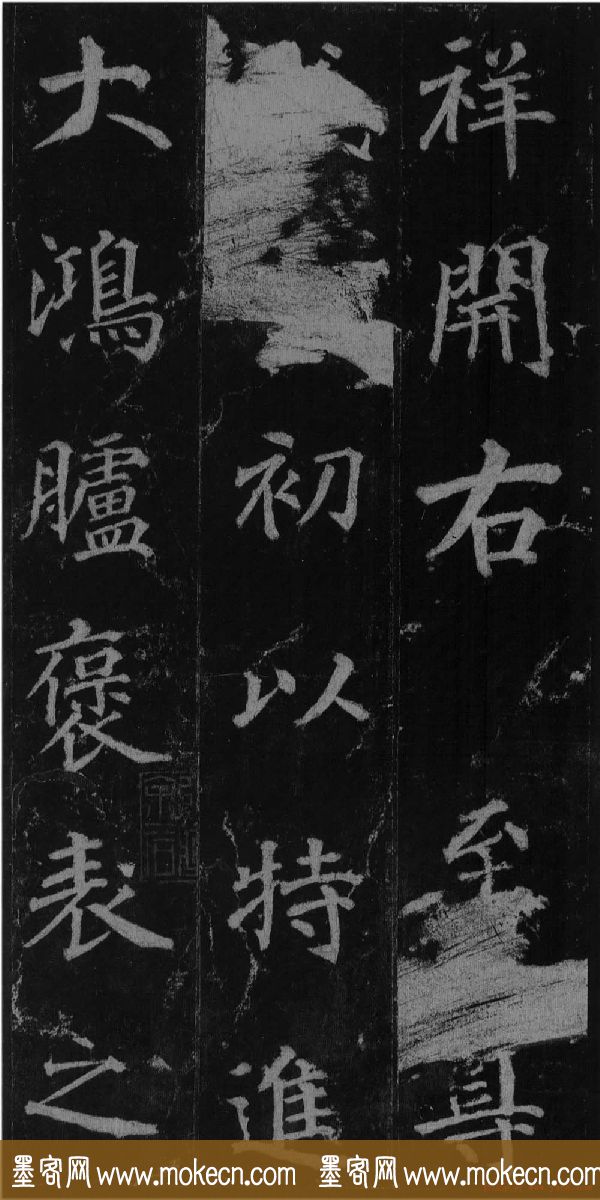 祥開右至
初以特進
大鴻臚褒表之
墨客网 www.mokecn.com 墨客网 www.mokecn.com